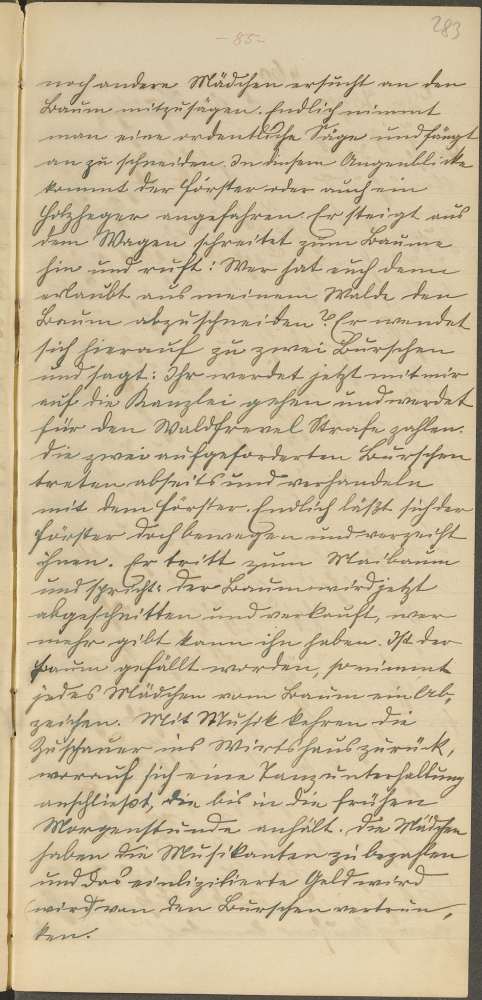 283
- 85 -
noch andere Mädchen ersucht an den
Baum mitzusägen. Endlich nimmt
man eine ordentliche Säge und fängt
an zu schneiden. In diesem Augenblicke
kommt der Förster oder auch ein
Holzheger angefahren. Er steigt aus
dem Wagen schreitet zum Baume
hin und ruft: Wer hat euch denn
erlaubt aus meinem Walde den
Baum abzuschneiden? Er wendet
sich hierauf zu zwei Burschen
und sagt: Ihr werdet jetzt mit mir
auf die Kanzlei gehen und werdet
für den Waldfrevel Strafe zahlen.
Die zwei aufgeforderten Burschen
treten abseits und verhandeln
mit dem Förster. Endlich läßt sich der
Förster doch bewegen und verzeiht
ihnen. Er tritt zum Maibaum
und spricht: Der Baum wird jetzt
abgeschnitten und verkauft, wer
mehr gibt kann ihn haben. Ist der
Baum gefällt worden, so nimmt
jedes Mädchen vom Baum ein Ab-
zeichen. Mit Musik kehren die
Zuschauer ins Wirtshaus zurück,
worauf sich eine Tanzunterhaltung
anschließt, die bis in die frühen
Morgenstunde anhält. Die Mädchen
haben die Musikanten zu bezahlen
und das einlizitierte Geld wird
(wird) von den Burschen vertrun-
ken.